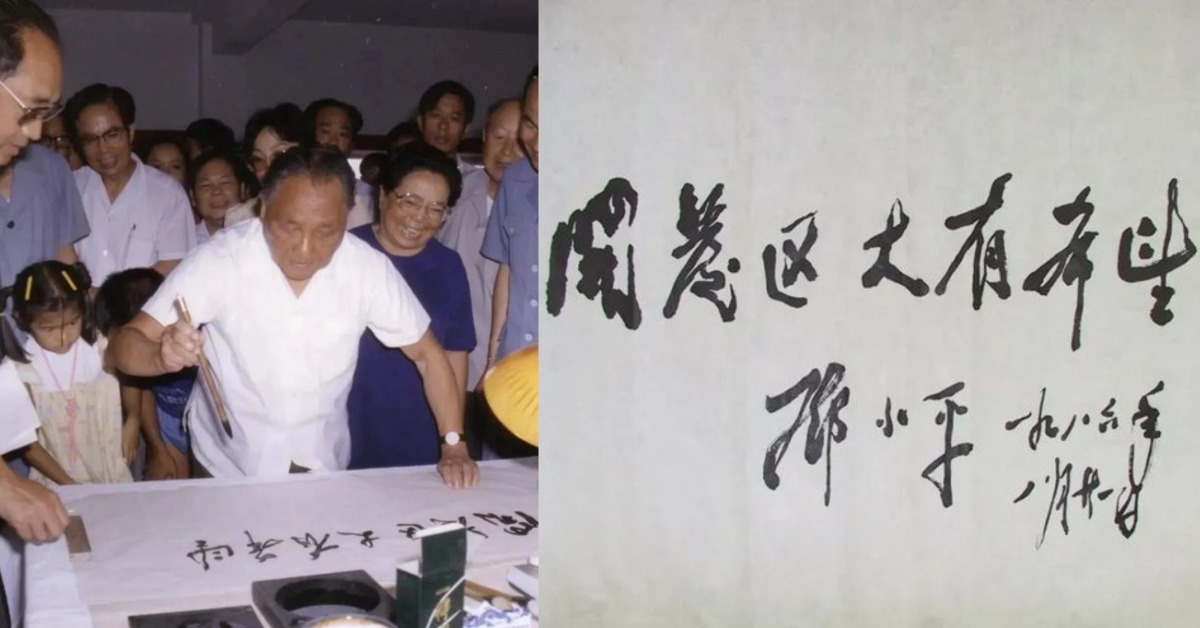 開發区大有希望
開發区大有希望
邓小平
一九八六年
八月廿一日